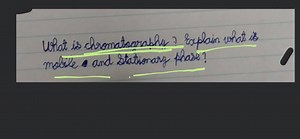 What is chromatography? Explain what is
mobile and stationary phase?